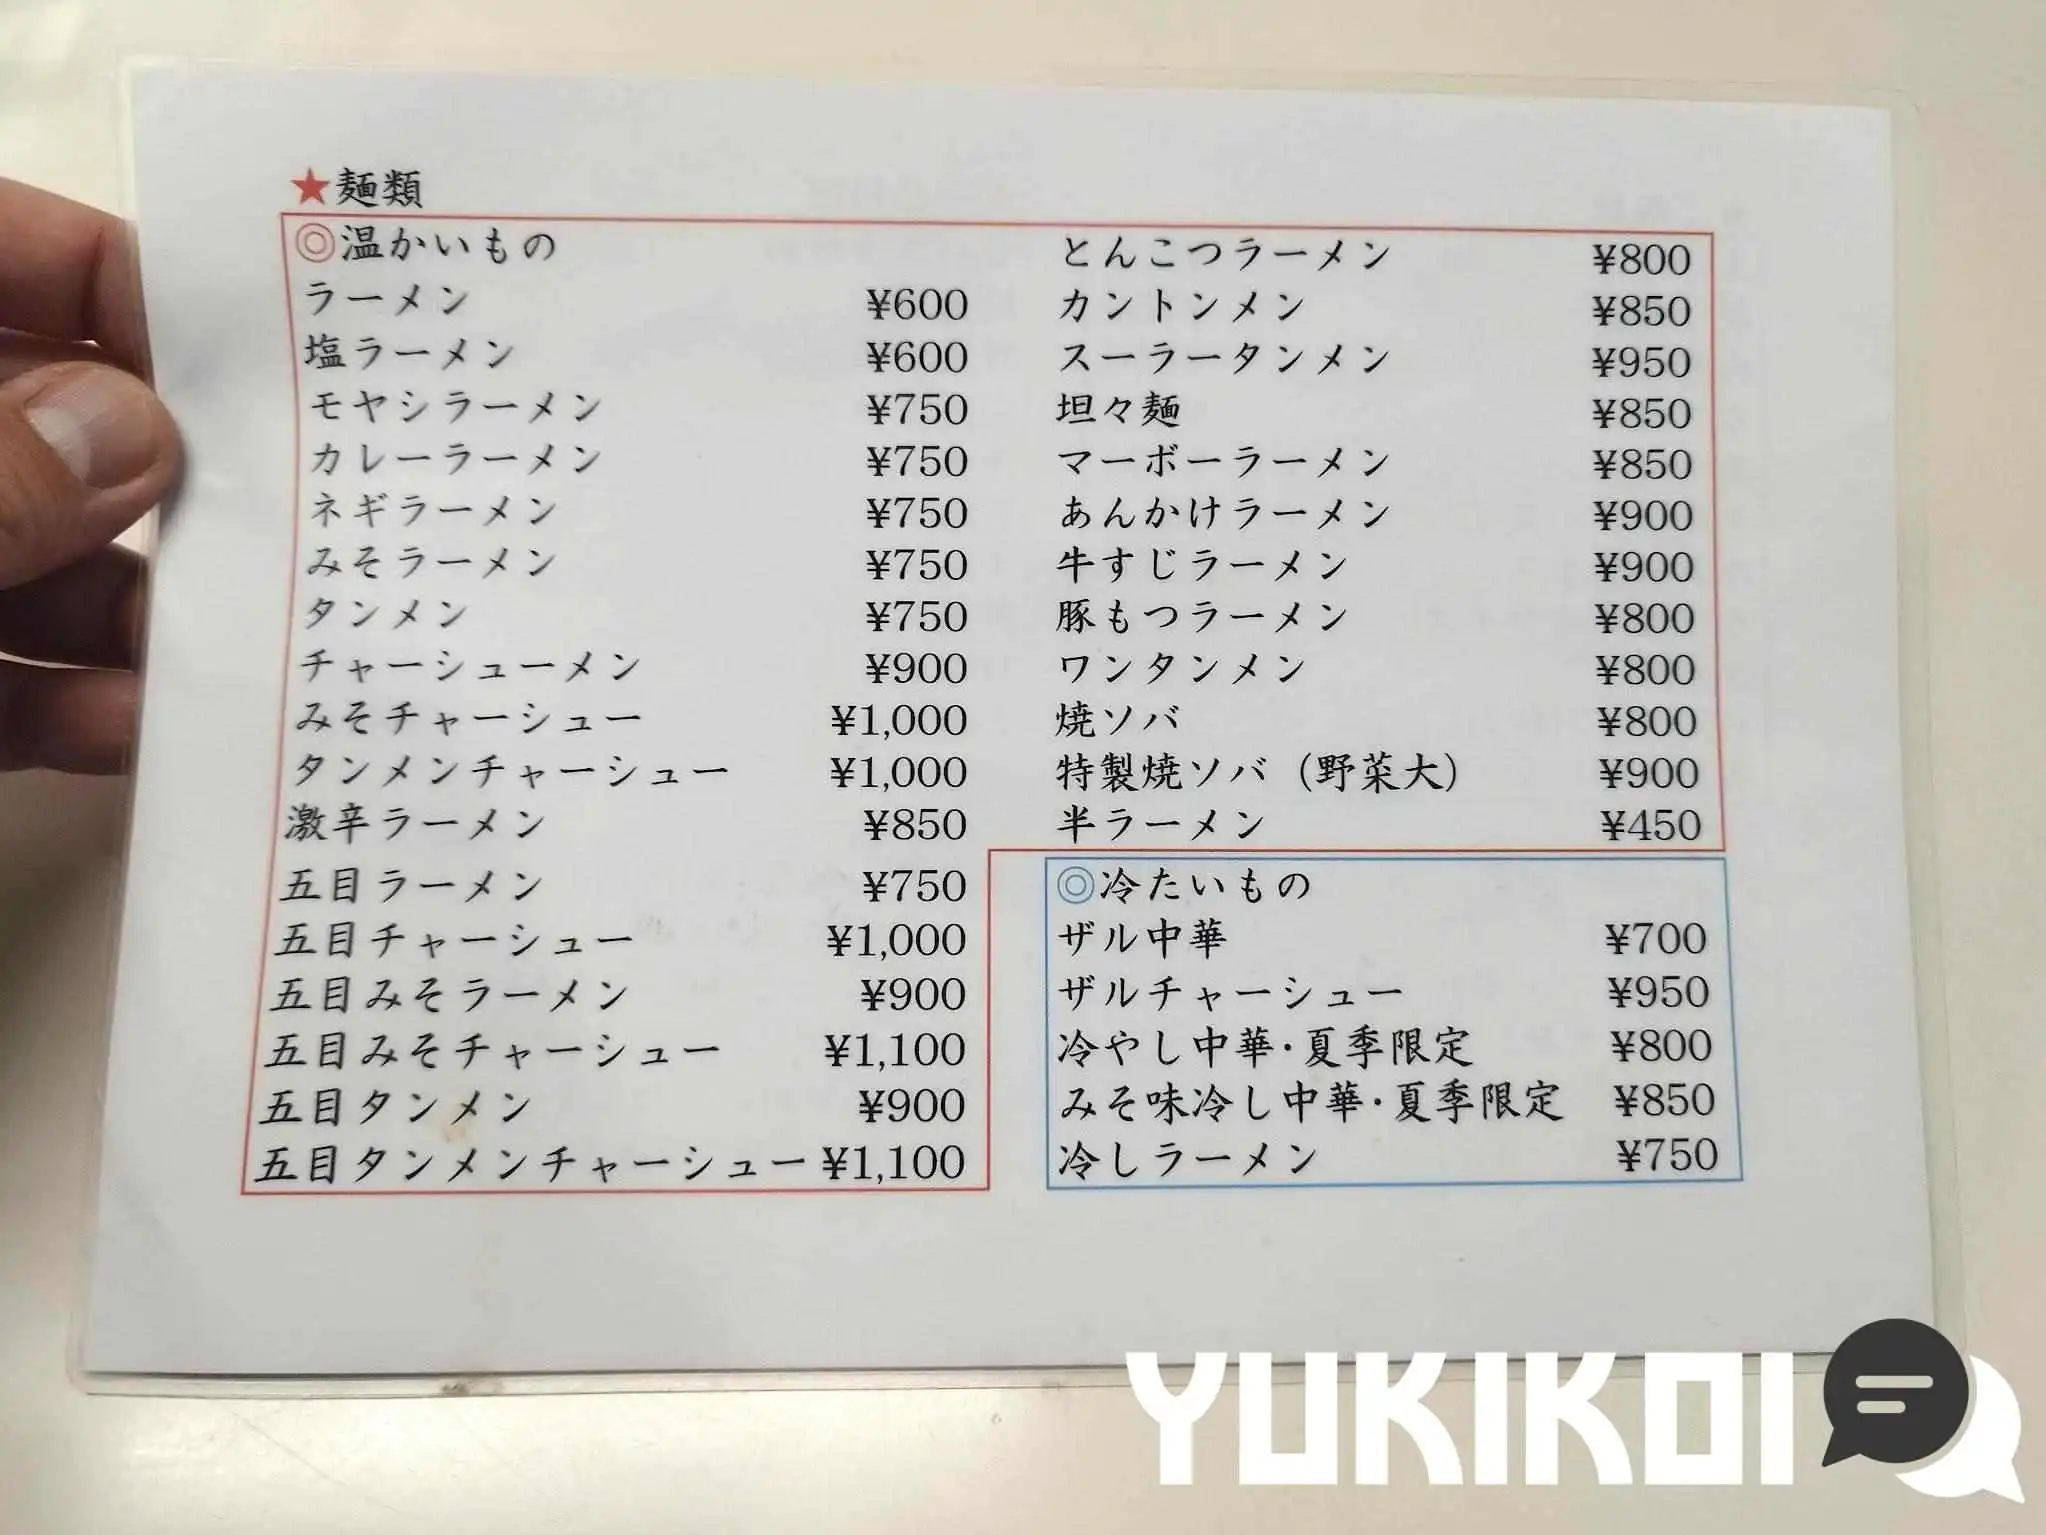 ★麺類
◎温かいもの
ラーメン ¥600
塩ラーメン ¥600
モヤシラーメン ¥750
カレーラーメン ¥750
ネギラーメン ¥750
みそラーメン ¥750
タンメン ¥750
チャーシューメン ¥900
みそチャーシュー ¥1,000
タンメンチャーシュー ¥1,000
激辛ラーメン ¥850
五目ラーメン ¥750
五目チャーシュー ¥1,000
五目みそラーメン ¥900
五目みそチャーシュー ¥1,100
五目タンメン ¥900
五目タンメンチャーシュー ¥1,100
とんこつラーメン ¥800
カントンメン ¥850
スーラータンメン ¥950
坦々麺 ¥850
マーボーラーメン ¥850
あんかけラーメン ¥900
牛すじラーメン ¥900
豚もつラーメン ¥800
ワンタンメン ¥800
焼ソバ ¥800
特製焼ソバ（野菜大） ¥900
半ラーメン ¥450
◎冷たいもの
ザル中華 ¥700
ザルチャーシュー ¥950
冷やし中華・夏季限定 ¥800
みそ味冷し中華・夏季限定 ¥850
冷しラーメン ¥750
YUKIKOI